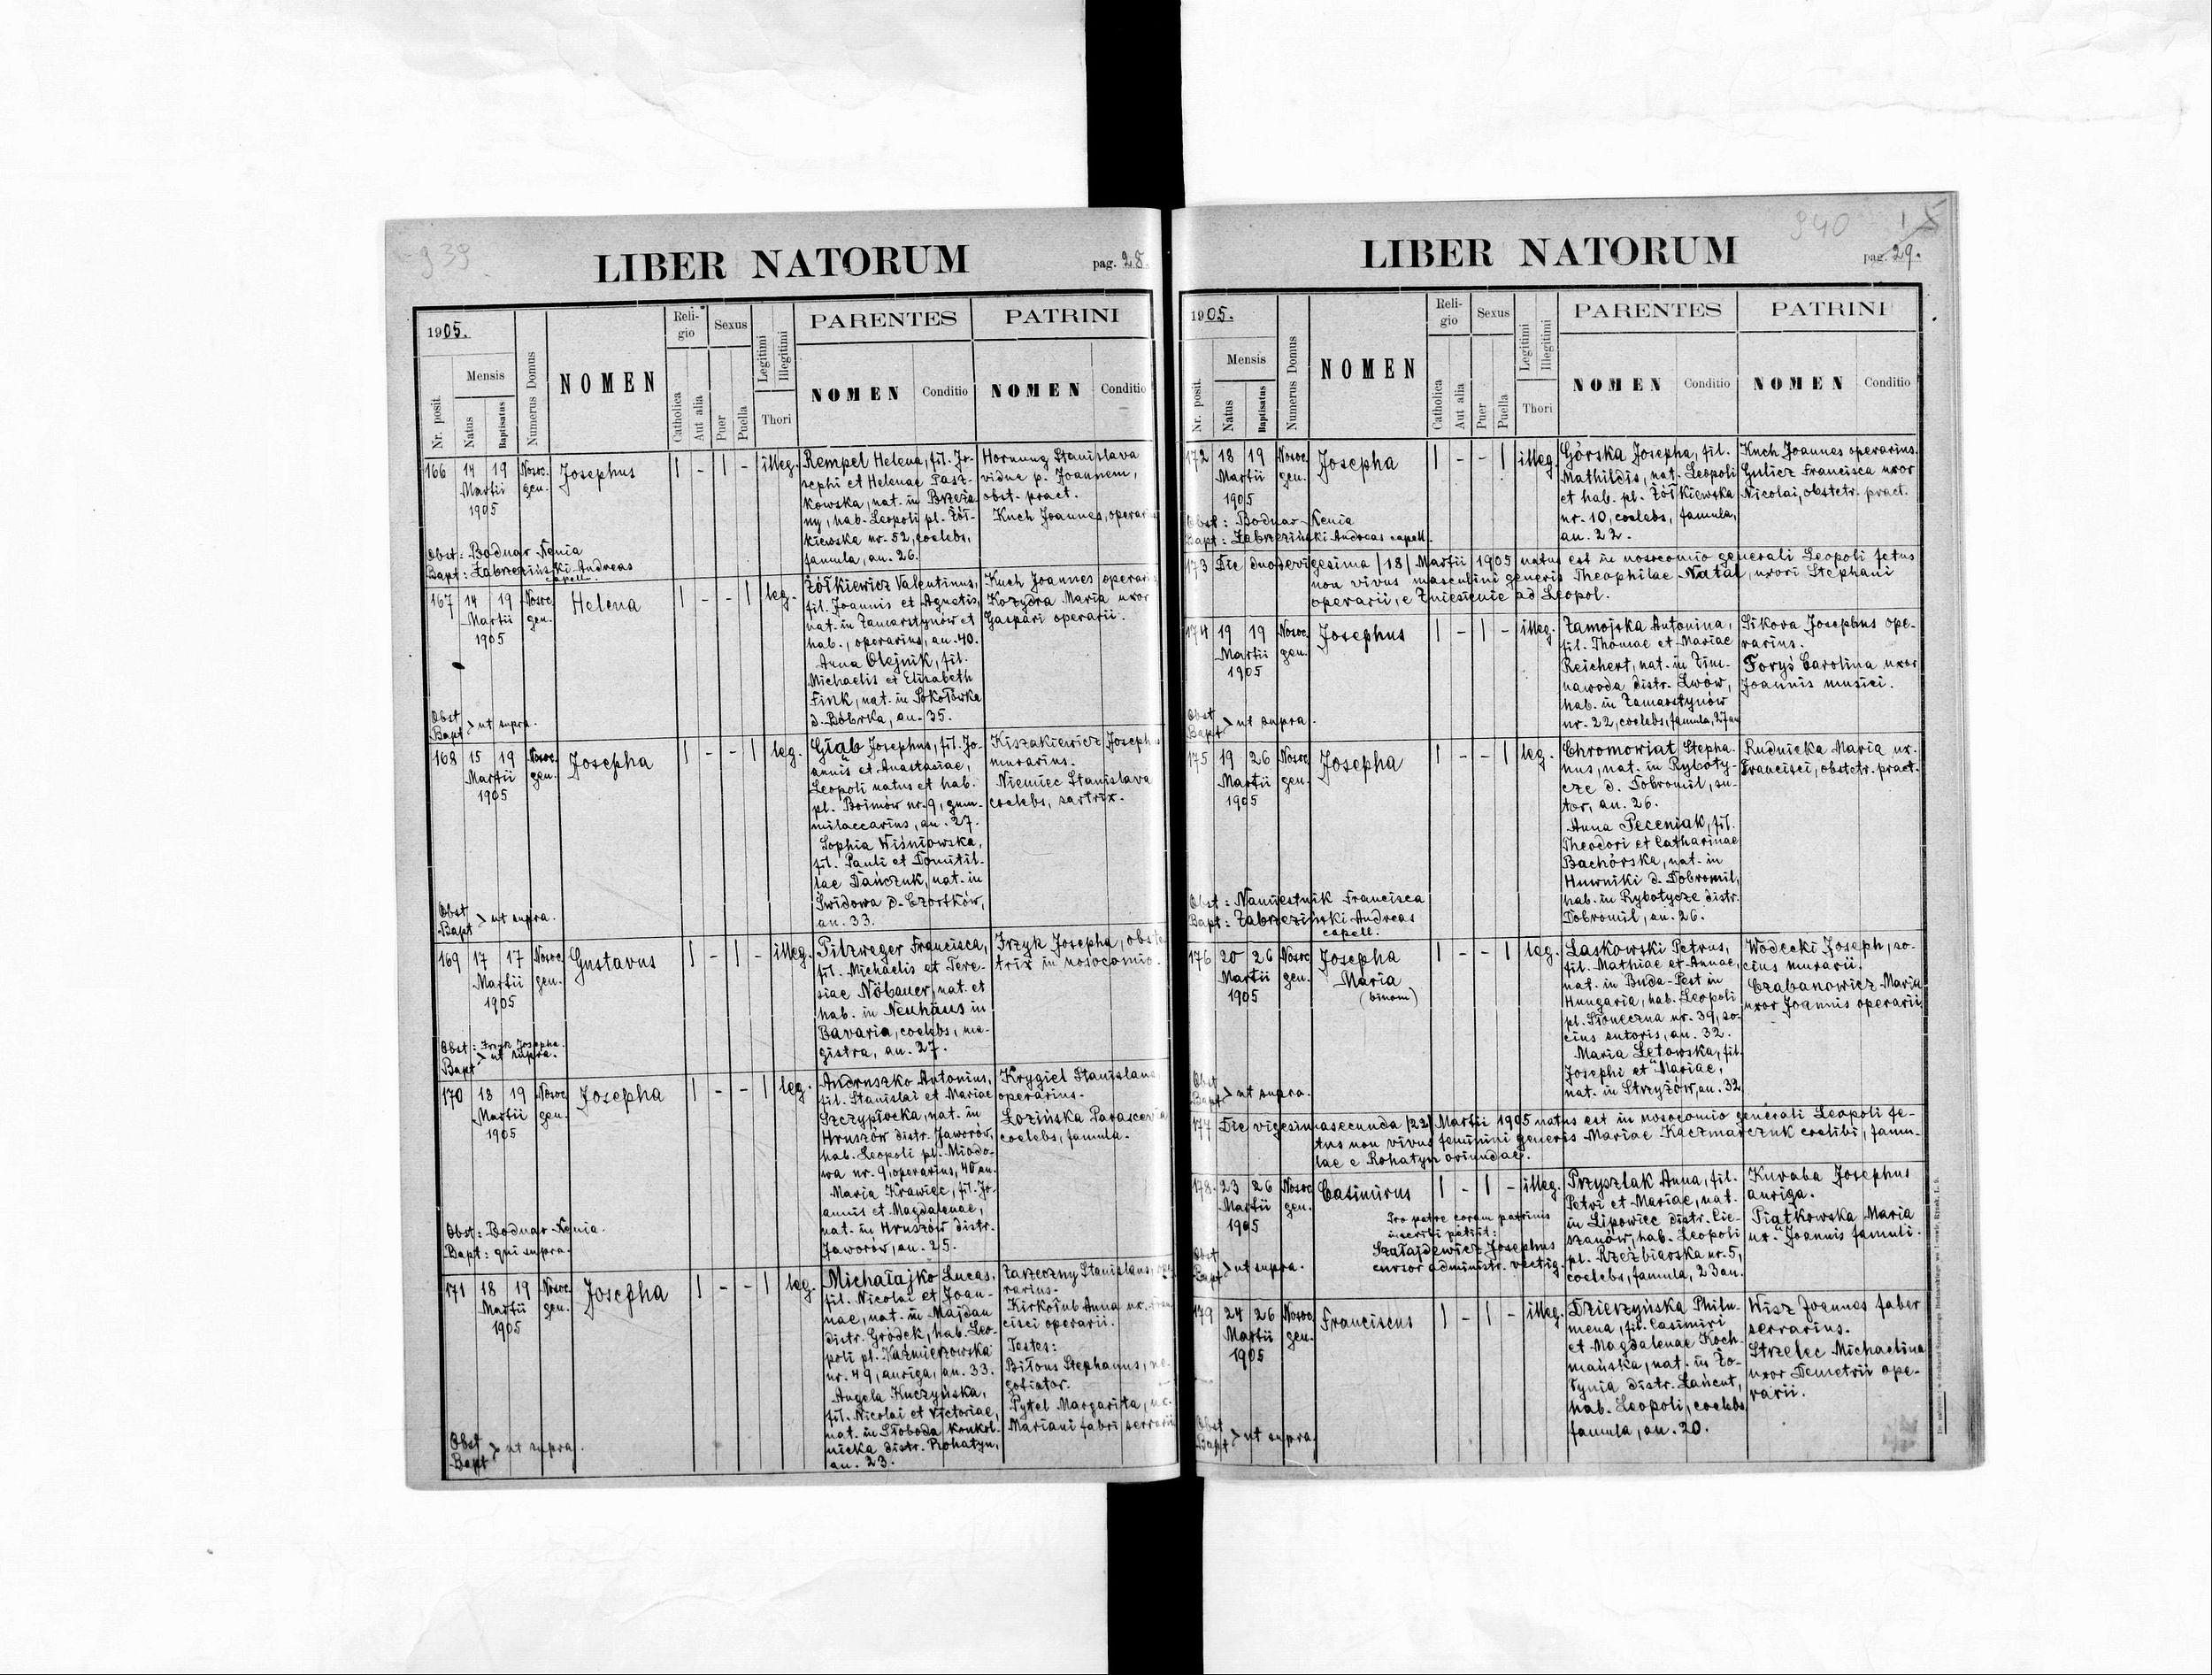 939
LIBER NATORUM
pag. 28.
1905.
Nr. posit.
Mensis
Natus
Baptisatus
Numerus Domus
NOMEN
Religio
Catholica
Aut alia
Sexus
Puer
Puella
Legitimi
Illegitimi
Thori
PARENTES
NOMEN
Conditio
PATRINI
NOMEN
Conditio
166 14 19 Nosoc. gen. Josephus | - | - illeg.
Martii
1905
Rempel Helena, fil. Jo-
sephi et Helenae Pasz-
kowska, nat. in Brzeża-
ny, hab. Leopoli pl. Żół-
kiewska nr. 52, coelebs,
famula, an. 26.
Hornung Stanislava
vidua p. Joannem,
obst. pract.
Kuch Joannes, operar
Obst: Bodnar Xenia
Bapt: Zabrzeziński Andreas
capell.
167 14 19 Nosoc. gen. Helena | - - | leg.
Martii
1905
Żółkiewicz Valentinus,
fil. Joannis et Agnetis,
nat. in Zamarstynów et
hab., operarius, an. 40.
Anna Olejnik, fil.
Michaelis et Elisabeth
Fink, nat. in Sokołówka
d. Bóbrka, an. 35.
Kuch Joannes operari
Kozydra Maria uxor
Gaspari operarii.
Obst
Bapt > ut supra.
168 15 19 Nosoc. gen. Josepha | - - | leg.
Martii
1905
Giąb Josephus, fil. Jo-
annis et Anastasiae,
Leopoli natus et hab.
pl. Boimów nr. 9, gum-
milaccarius, an. 27.
Sophia Wiśniowska,
fil. Pauli et Domitil-
lae Dańczuk, nat. in
Świdowa d. Czortków,
an. 33.
Kiszakiewicz Joseph
murarius.
Niemiec Stanislava
coelebs, sartrix.
Obst
Bapt > ut supra.
169 17 17 Nosoc. gen. Gustavus | - | - illeg.
Martii
1905
Pilzweger Francisca,
fil. Michaelis et Tere-
siae Nöbauer, nat. et
hab. in Neuhäus in
Bavaria, coelebs, ma-
gistra, an. 27.
Frzyk Josepha, obste
trix in nosocomio.
Obst: Frzyk Josepha.
Bapt > ut supra.
170 18 19 Nosoc. gen. Josepha | - - | leg.
Martii
1905
Andruszko Antonius,
fil. Stanislai et Mariae
Szczypiocka, nat. in
Hruszów distr. Jaworów,
hab. Leopoli pl. Miodo-
wa nr. 9, operarius, 40 an.
Maria Krawiec, fil. Jo-
annis et Magdalenae,
nat. in Hruszów distr.
Jaworów, an. 25.
Krygiel Stanislaus
operarius.
Łozińska Parascevia
coelebs, famula.
Obst: Bodnar Xenia.
Bapt: qui supra.
171 18 19 Nosoc. gen. Josepha | - - | leg.
Martii
1905
Michałajko Lucas,
fil. Nicolai et Joan-
nae, nat. in Majdan
distr. Gródek, hab. Leo-
poli pl. Kazmierzowska
nr. 49, auriga, an. 33.
Angela Kuczyńska,
fil. Nicolai et Victoriae,
nat. in Słoboda Konkol-
nicka distr. Rohatyn,
an. 23.
Zarzeczny Stanislaus, ope
rarius.
Kirkołub Anna ux. Fran
cisci operarii.
Testes:
Biłous Stephanus, ne-
gotiator.
Pytel Margarita, ux.
Mariani fabri serrarii
Obst
Bapt > ut supra.
940
LIBER NATORUM
pag. 29.
1905.
Nr. posit.
Mensis
Natus
Baptisatus
Numerus Domus
NOMEN
Religio
Catholica
Aut alia
Sexus
Puer
Puella
Legitimi
Illegitimi
Thori
PARENTES
NOMEN
Conditio
PATRINI
NOMEN
Conditio
172 18 19 Nosoc. gen. Josepha | - - | illeg.
Martii
1905
Górska Josepha, fil.
Mathildis, nat. Leopoli
et hab. pl. Żółkiewska
nr. 10, coelebs, famula,
an. 22.
Kuch Joannes operarius.
Gulicz Francisca uxor
Nicolai, obstetr. pract.
Obst: Bodnar Xenia
Bapt: Zabrzeziński Andreas capell.
173 Die duodevigesima /18/ Martii 1905 natus est in nosocomio generali Leopoli fetus
non vivus masculini generis Theophilae Natal, uxori Stephani
operarii, e Zniesienie ad Leopol.
174 19 19 Nosoc. gen. Josephus | - | - illeg.
Martii
1905
Zamojska Antonina,
fil. Thomae et Mariae
Reichert, nat. in Zim-
nawoda distr. Lwów,
hab. in Zamarstynów
nr. 22, coelebs, famula, 27 an
Sikora Josephus ope-
rarius.
Foryś Carolina uxor
Joannis musici.
Obst
Bapt > ut supra.
175 19 26 Nosoc. gen. Josepha | - - | leg.
Martii
1905
Chromowiat Stepha-
nus, nat. in Ryboty-
cze d. Dobromil, su-
tor, an. 26.
Anna Peceniak, fil.
Theodori et Catharinae
Bachórska, nat. in
Huwniki d. Dobromil,
hab. in Rybotycze distr.
Dobromil, an. 26.
Rudnicka Maria ux.
Francisci, obstetr. pract.
Obst: Namiestnik Francisca
Bapt: Zabrzeziński Andreas
capell.
176 20 26 Nosoc. gen. Josepha | - - | leg.
Maria
(binom)
Martii
1905
Laskowski Petrus,
fil. Mathiae et Annae,
nat. in Buda-Pest in
Hungaria, hab. Leopoli
pl. Słoneczna nr. 39, so-
cius sutoris, an. 32.
Maria Letowska, fil.
Josephi et Mariae,
nat. in Strzyżów, an. 32
Wodecki Joseph, so-
cius murarii.
Czabanowicz Maria
uxor Joannis operarii.
Obst
Bapt > ut supra.
177 Die vigesimasecunda /22/ Martii 1905 natus est in nosocomio generali Leopoli fe-
tus non vivus feminini generis Mariae Kaczmarczuk coelibi, famu-
lae e Rohatyn oriundae.
178. 23 26 Nosoc. gen. Casimirus | - | - illeg.
Martii
1905
Pro patre coram patrinis
inscribi petiit:
Szałajdewicz Josephus
cursor administr. vectig.
Przyszlak Anna, fil.
Petri et Mariae, nat.
in Lipowiec distr. Cie-
szanów, hab. Leopoli
pl. Rzeźbiarska nr. 5,
coelebs, famula, 23 an.
Kuraba Josephus
auriga.
Piątkowska Maria
ux. Joannis famuli.
Obst
Bapt > ut supra.
179 24 26 Nosoc. gen. Franciscus | - | - illeg.
Martii
1905
Dzierzyńska Philu-
mena, fil. Casimiri
et Magdalenae Koch-
mańska, nat. in Żo-
łynia distr. Łańcut,
hab. Leopoli, coelebs
famula, an. 20.
Wisz Joannes faber
serrarius.
Strzelec Michaelina
uxor Demetrii ope-
rarii.
Obst
Bapt > ut supra.